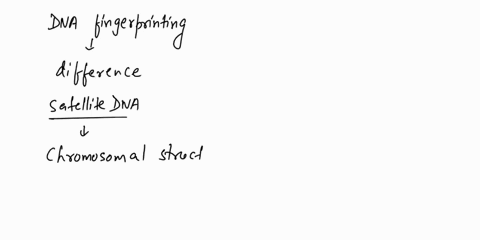 DNA fingerprinting
↓
difference
satellite DNA
↓
Chromosomal struct